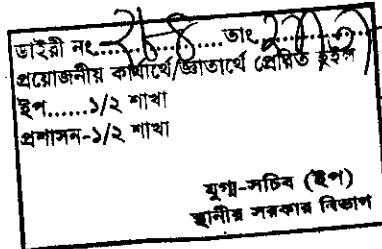 ডাইরী নং.................তাং.................
প্রয়োজনীয় কার্যার্থে/জ্ঞাতার্থে প্রেরিত হইল
ইপ......১/২ শাখা
প্রশাসন-১/২ শাখা
যুগ্ম-সচিব (ইপ)
স্থানীয় সরকার বিভাগ